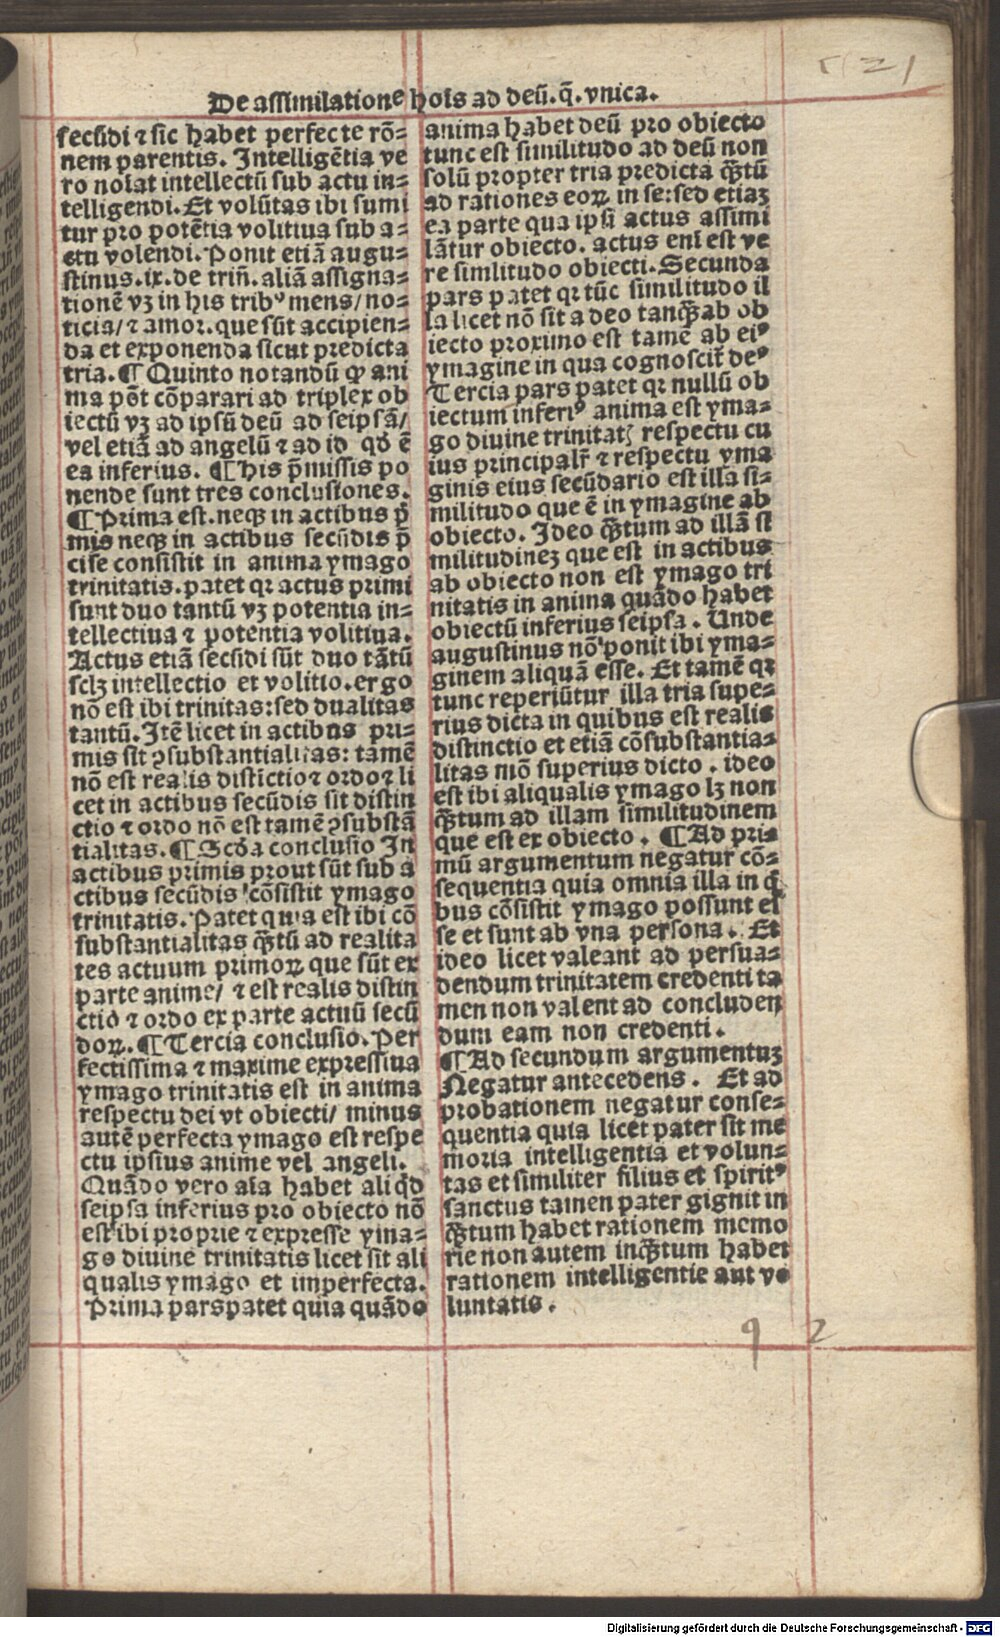 De assimilatione hoīs ad deū.q̄.vnica.
secūdi ⁊ sic habet perfecte rō=
nem parentis. Intelligētia ve
ro noīat intellectū sub actu in=
telligendi. Et volūtas ibi sumi
tur pro potētia volitiua sub a=
ctu volendi. Ponit etiā augu=
stinus.ix.de trin̄. aliā assigna=
tionē vꝫ in his tribꝰ mens/no=
ticia/⁊ amor. que sūt accipien=
da et exponenda sicut predicta
tria. ¶ Quinto notandū ꝙ ani
ma pōt cōparari ad triplex ob
iectū vꝫ ad ipsū deū ad seipsā/
vel etiā ad angelū ⁊ ad id qd̄ ē
ea inferius. ¶ His p̄missis po
nende sunt tres conclusiones.
¶ Prima est. neqꝫ in actibus p̄
mis neqꝫ in actibus secūdis p̄
cise consistit in anima ymago
trinitatis. patet qꝛ actus primi
sunt duo tantū vꝫ potentia in=
tellectiua ⁊ potentia volitiua.
Actus etiā secūdi sūt duo tātū
sclꝫ intellectio et volitio. ergo
nō est ibi trinitas: sed dualitas
tantū. Itē licet in actibus pri=
mis sit ꝯsubstantialitas: tamē
nō est realis distictio ⁊ ordo ⁊ li
cet in actibus secūdis sit distin
ctio ⁊ ordo nō est tamē ꝯsubstā
tialitas. ¶ Scd̄a conclusio In
actibus primis prout sūt sub a
ctibus secūdis cōsistit ymago
trinitatis. Patet quia est ibi cō
substantialitas q̄ꝫtū ad realita
tes actuum primoꝝ que sūt ex
parte anime/ ⁊ est realis distin
ctio ⁊ ordo ex parte actuū secū
doꝝ. ¶ Tercia conclusio. Per
fectissima ⁊ maxime expressiua
ymago trinitatis est in anima
respectu dei vt obiecti/ minus
autē perfecta ymago est respe
ctu ipsius anime vel angeli.
Quādo vero aīa habet aliqd̄
seipsa inferius pro obiecto nō
est ibi proprie ⁊ expresse yma=
go diuine trinitatis licet sit ali
qualis ymago et imperfecta.
Prima pars patet quia quādo
anima habet deū pro obiecto
tunc est similitudo ad deū non
solū propter tria predicta q̄ꝫtū
ad rationes eoꝝ in se: sed etiaꝫ
ea parte qua ipsi actus assimi
lātur obiecto. actus enī est ve
re similitudo obiecti. Secunda
pars patet qꝛ tūc similitudo il
la licet nō sit adeo tanq̄ꝫ ab ob
iecto proximo est tamē ab eiꝰ
ymagine in qua cognoscit̄ deꝰ
Tercia pars patet qꝛ nullū ob
iectum inferiꝰ anima est yma=
go diuine trinitatꝭ respectu cu
ius principalr̄ ⁊ respectu yma
ginis eius secūdario est illa si=
militudo que ē in ymagine ab
obiecto. Ideo q̄ꝫtum ad illā si
militudineꝫ que est in actibus
ab obiecto non est ymago tri
nitatis in anima quādo habet
obiectū inferius seipsa. Unde
augustinus nō ponit ibi yma=
ginem aliquā esse. Et tamē qꝛ
tunc reperiūtur illa tria supe=
rius dicta in quibus est realis
distinctio et etiā cōsubstantia=
litas mō superius dicto. ideo
est ibi aliqualis ymago lꝫ non
q̄ꝫtum ad illam similitudinem
que est ex obiecto. ¶ Ad pri=
mū argumentum negatur cō=
sequentia quia omnia illa in q̄
bus cōsistit ymago possunt es
se et sunt ab vna persona. Et
ideo licet valeant ad persua=
dendum trinitatem credenti ta
men non valent ad concluden
dum eam non credenti.
¶ Ad secundum argumentuꝫ
Negatur antecedens. Et ad
probationem negatur conse=
quentia quia licet pater sit me
moria intelligentia et volun=
tas et similiter filius et spiritꝰ
sanctus tamen pater gignit in
q̄ꝫtum habet rationem memo
rie non autem inq̄ꝫtum habet
rationem intelligentie aut vo
luntatis.
q 2
Digitalisierung gefördert durch die Deutsche Forschungsgemeinschaft - DFG